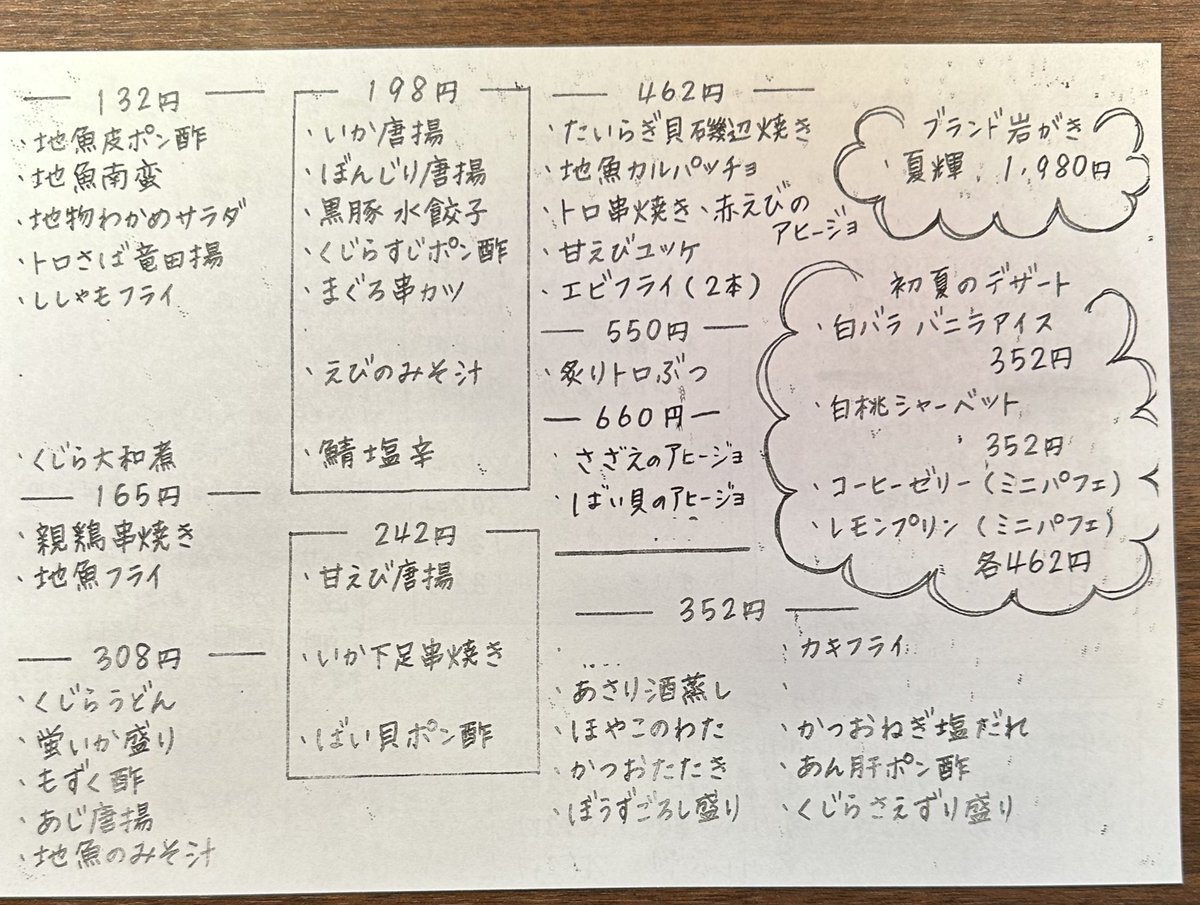 132円
・地魚皮ポン酢
・地魚南蛮
・地物わかめサラダ
・トロさば竜田揚
・ししゃもフライ
・くじら大和煮
165円
・親鶏串焼き
・地魚フライ
308円
・くじらうどん
・蛍いか盛り
・もずく酢
・あじ唐揚
・地魚のみそ汁
198円
・いか唐揚
・ぼんじり唐揚
・黒豚水餃子
・くじらすじポン酢
・まぐろ串カツ
・えびのみそ汁
・鯖塩辛
242円
・甘えび唐揚
・いか下足串焼き
・ばい貝ポン酢
462円
・たいらぎ貝磯辺焼き
・地魚カルパッチョ
・トロ串焼き・赤えびの
アヒージョ
・甘えびユッケ
・エビフライ(2本)
550円
・炙りトロぶつ
660円
・さざえのアヒージョ
・ばい貝のアヒージョ
352円
・あさり酒蒸し
・ほやこのわた
・かつおたたき
・ぼうずごろし盛り
・カキフライ
・
・かつおねぎ塩だれ
・あん肝ポン酢
・くじらさえずり盛り
ブランド岩がき
・夏輝 1,980円
初夏のデザート
・白バラ バニラアイス
352円
・白桃シャーベット
352円
・コーヒーゼリー(ミニパフェ)
・レモンプリン(ミニパフェ)
各462円